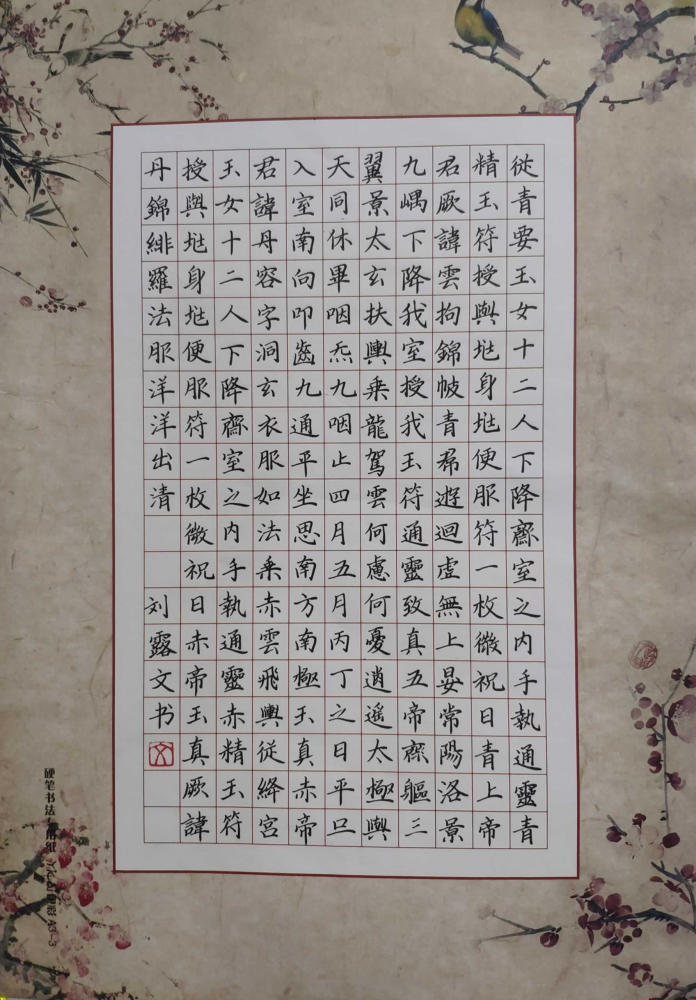 從青要玉女十二人下降齋室之内手執通靈青
精玉符授與兆身兆便服符一枚微祝曰青上帝
君厥諱雲拘錦帔青帬遊迴虛無上晏常陽洛景
九嵎下降我室授我玉符通靈致真五帝齋軀三
翼景太玄扶輿乘龍駕雲何慮何憂逍遙太極與
天同休畢咽炁九咽止四月五月丙丁之日平旦
入室南向叩齒九通平坐思南方南極玉真赤帝
君諱丹容字洞玄衣服如法乘赤雲飛輿從絳宮
玉女十二人下降齋室之内手執通靈赤精玉符
授與兆身兆便服符一枚微祝曰赤帝玉真厥諱
丹錦緋羅法服洋洋出清 刘露文书
文
硬笔书法专用纸 A3-3